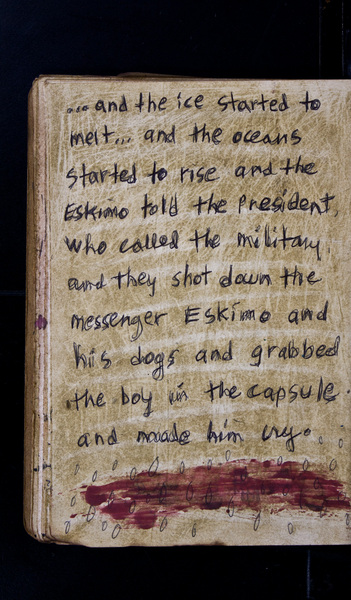 ... and the ice started to
melt... and the oceans
started to rise and the
Eskimo told the President,
who called the military,
and they shot down the
messenger Eskimo and
his dogs and grabbed
the boy in the capsule
and made him cry.